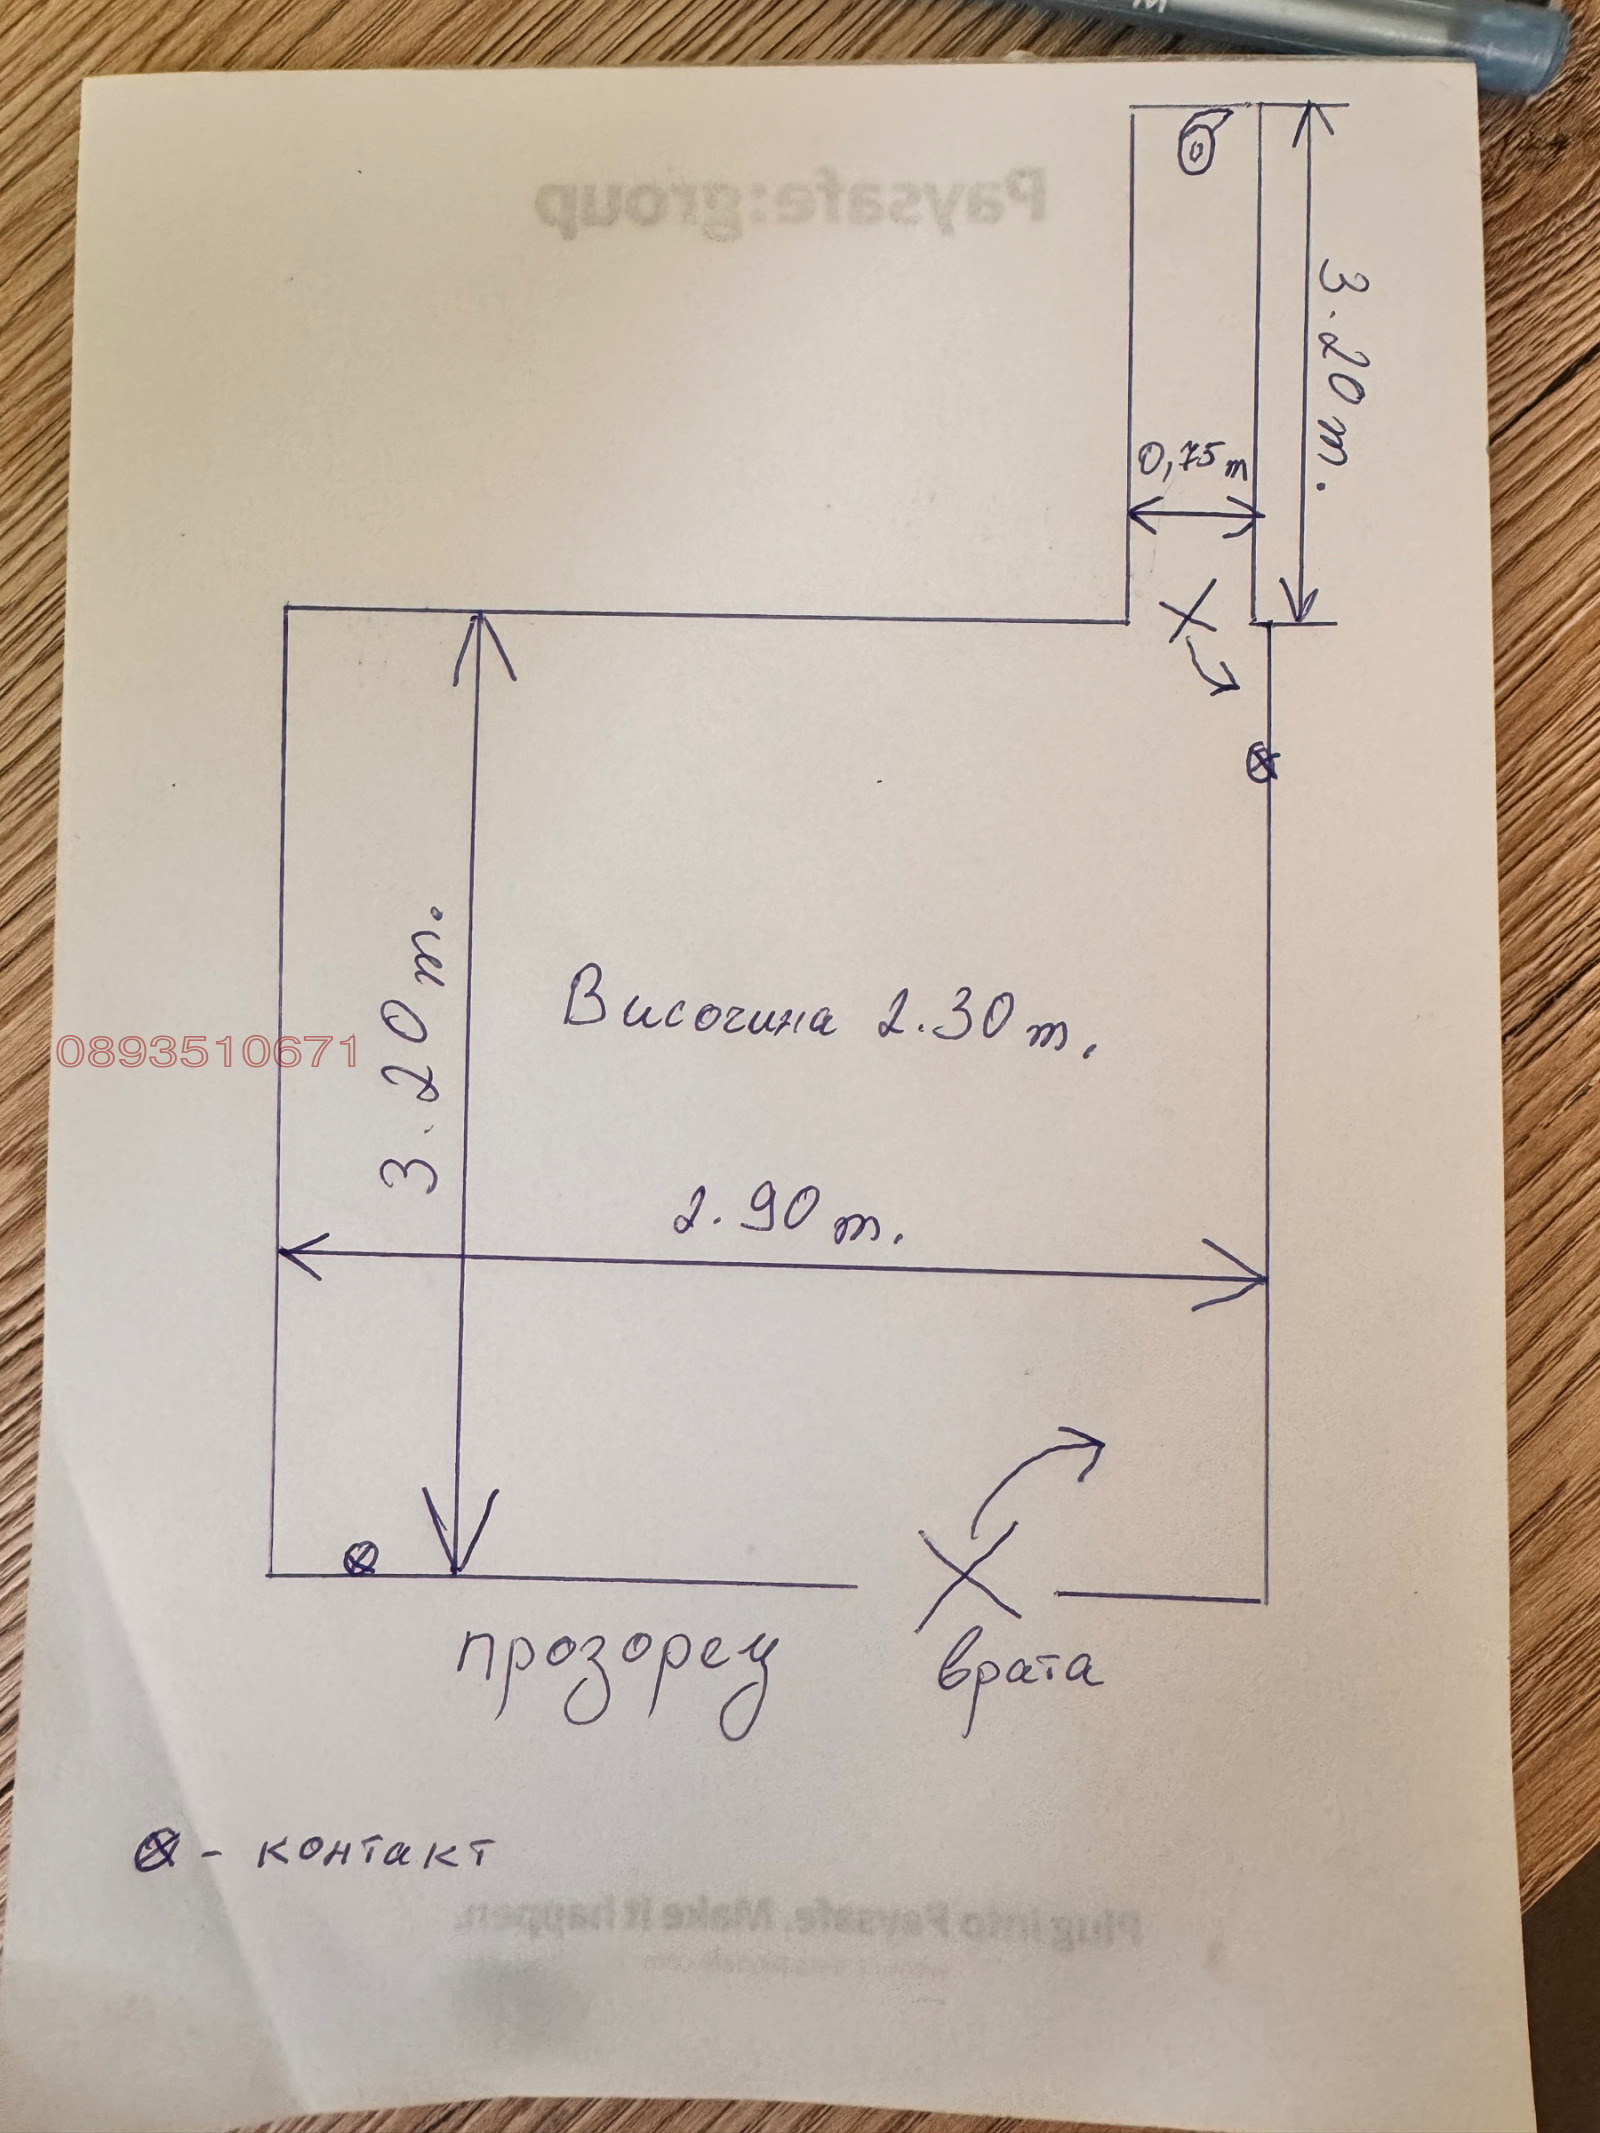 Paysafe:group
3.20m.
0,75m
3.20m.
Височина 2.30m.
0893510671
2.90m.
прозорец
врата
⊗ - контакт
Plug into Paysafe. Make it happen.